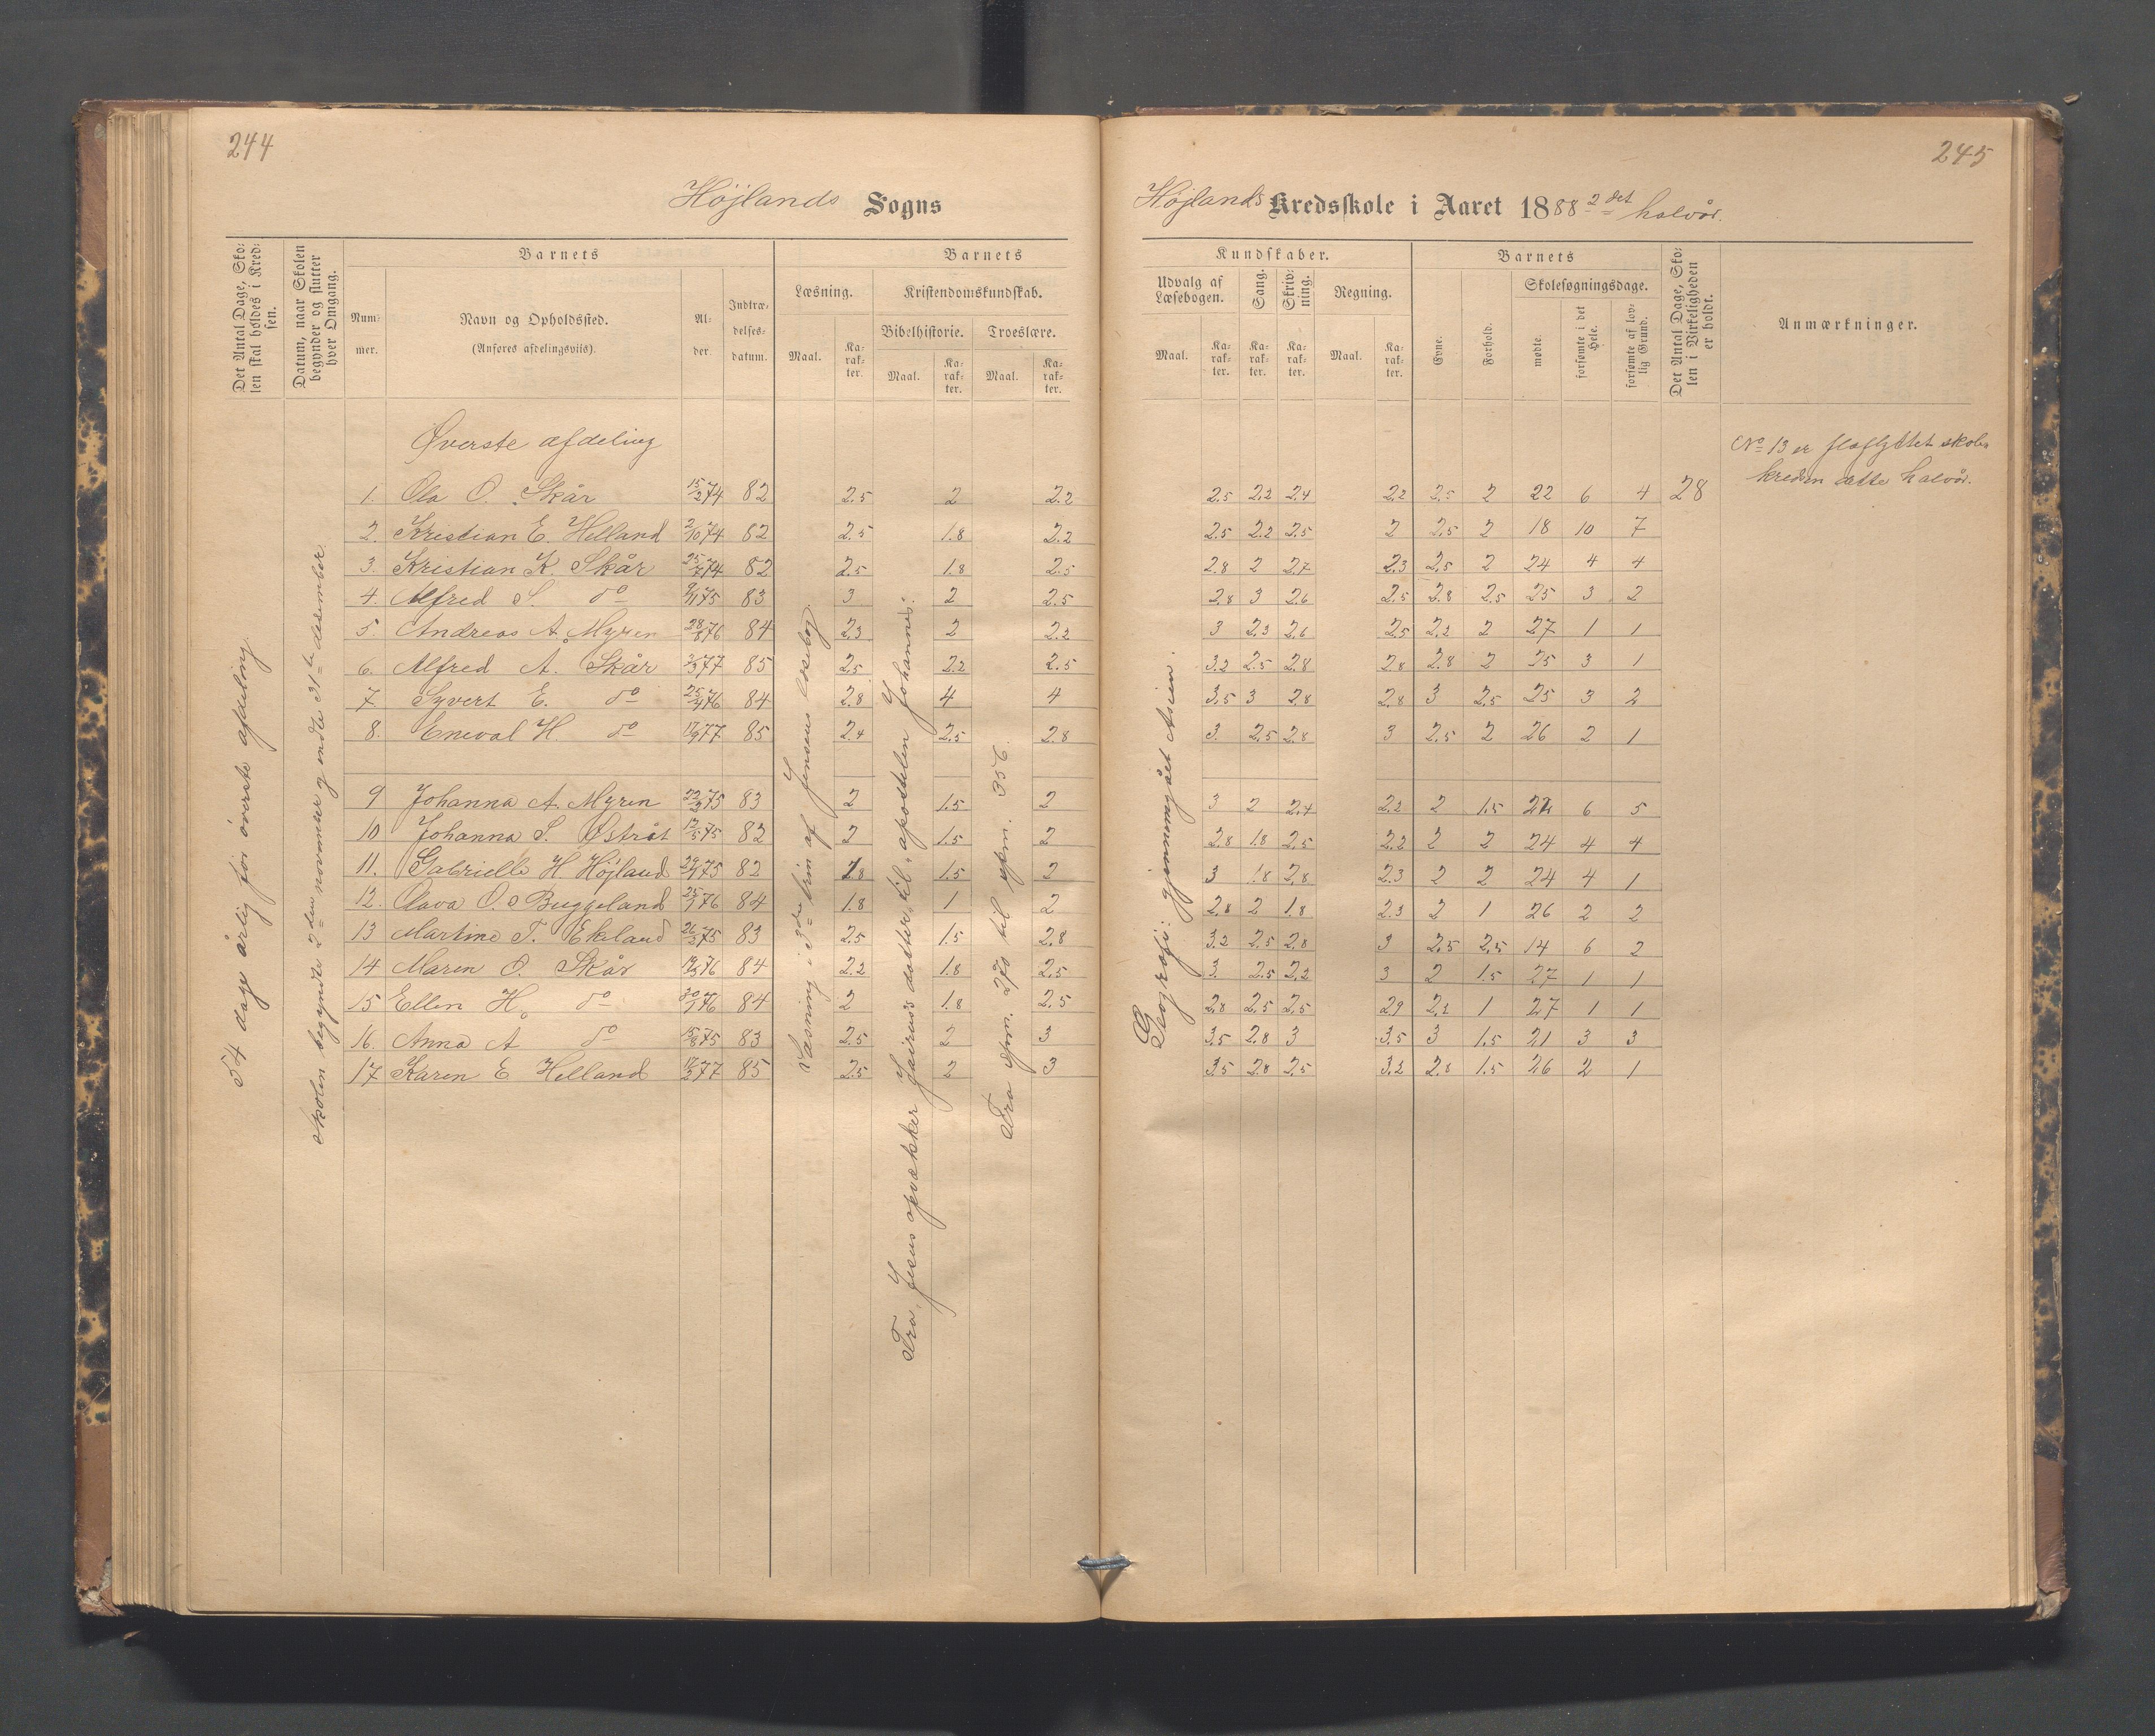 244
Højlands Sogns
Det Antal Dage, Sko-
len skal holdes i Kred-
sen.
Datum, naar Skolen
begynder og slutter
hver Omgang.
Barnets
Num-
mer.
Navn og Opholdssted.
(Anføres afdelingsviis).
Al-
der.
Indtræ-
delses-
datum.
Barnets
Læsning.
Maal.
Ka-
rak-
ter.
Kristendomskundskab.
Bibelhistorie.
Maal.
Ka-
rak-
ter.
Troeslære.
Maal.
Ka-
rak-
ter.
54 dage årlig for øverste afdeling.
Skolen begyndte 2den november og endte 31te desember.
Læsning i 3die trin af Jensens læsebog.
Fra „Jesus opvækker Jairus's datter“ til „apostelen Johannes“.
Fra spm. 270 til spm. 356.
Øverste afdeling
1. Ola O. Skår 15/2 74 82 2.5 2 2.2
2. Kristian E. Helland 2/10 74 82 2.5 1.8 2.2
3. Kristian K. Skår 25/7 74 82 2.5 1.8 2.5
4. Alfred S. do 9/11 75 83 3 2 2.5
5. Andreas A. Myren 28/8 76 84 2.3 2 2.2
6. Alfred A. Skår 3/3 77 85 2.5 2.2 2.5
7 Syvert E. do 25/4 76 84 2.8 4 4
8. Eneval H. do 17/9 77 85 2.4 2.5 2.8
9 Johanna A. Myren 23/3 75 83 2 1.5 2
10 Johanna S. Østråt 12/5 75 82 2 1.5 2
11. Gabrielle H. Højland 29/4 75 82 1.8 1.5 2
12. Olava O. Buggeland 25/1 76 84 1.8 1 2
13 Martine T. Ekeland 26/3 75 83 2.5 1.5 2.8
14 Maren O. Skår 76 84 2.2 1.8 2.5
15 Ellen H. do 30/1 76 84 2 1.8 2.5
16. Anna A do 15/8 75 83 2.5 2 3
17 Karen E. Helland 17/2 77 85 2.5 2 3
245
Højlands Kredsskole i Aaret 1888 2det halvår.
Kundskaber.
Udvalg af
Læsebogen.
Maal.
Ka-
rak-
ter.
Sang.
Ka-
rak-
ter.
Skriv-
ning.
Ka-
rak-
ter.
Regning.
Maal.
Ka-
rak-
ter.
Barnets
Evne.
Forhold.
Skolesøgningsdage.
mødte.
forsømte i det
Hele.
forsømte af lov-
lig Grund.
Det Antal Dage, Sko-
len i Virkeligheden
er holdt.
Anmærkninger.
Geografi: gjennemgået Asien.
No 13 er fraflyttet skole-
kredsen dette halvår.
2.5 2.2 2.4 2.2 2.5 2 22 6 4 28
2.5 2.2 2.5 2 2.5 2 18 10 7
2.8 2 2.7 2.3 2.5 2 24 4 4
2.8 3 2.6 2.5 2.8 2.5 25 3 2
3 2.3 2.6 2.5 2.2 2 27 1 1
3.2 2.5 2.8 2.8 2.8 2 25 3 1
3.5 3 2.8 2.8 3 2.5 25 3 2
3 2.5 2.8 3 2.5 2 26 2 1
3 2 2.4 2.2 2 1.5 22 6 5
2.8 1.8 2.5 2.2 2 2 24 4 4
3 1.8 2.8 2.3 2 2 24 4 1
2.8 2 1.8 2.3 2 1 26 2 2
3.2 2.5 2.8 3 2.5 2.5 14 6 2
3. 2.5 2.2 3 2 1.5 27 1 1
2.8 2.5 2.5 2.9 2.2 1 27 1 1
3.5 2.8 3 3.5 3 1.5 21 3 3
3.5 2.8 2.5 3.2 2.8 1.5 26 2 1